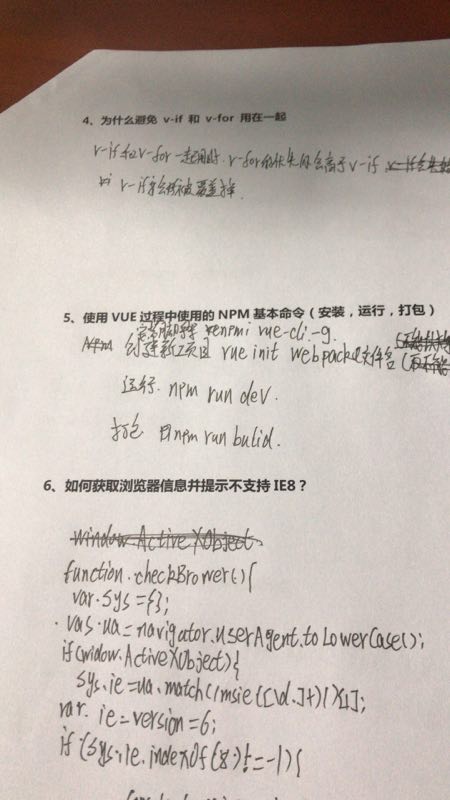 4、为什么避免 v-if 和 v-for 用在一起
v-if和v-for一起用时, v-for的优先级会高于v-if
v-if会被覆盖掉
5、使用 VUE 过程中使用的 NPM 基本命令（安装，运行，打包）
vue-cli -g
创建新项目 vue init webpack 文件名
运行. npm run dev.
打包 npm run bulid.
6、如何获取浏览器信息并提示不支持 IE8？
window.ActiveXObject
function.checkBrower(.){
var.sys={};
vas.ua=navigator.userAgent.toLowerCase();
if(widow.ActiveXObject){
sys.ie=ua.match(/msie([\d.]+)/)[1];
var. ie=version=6;
if (sys.ie.indexOf(8.)!=-1){